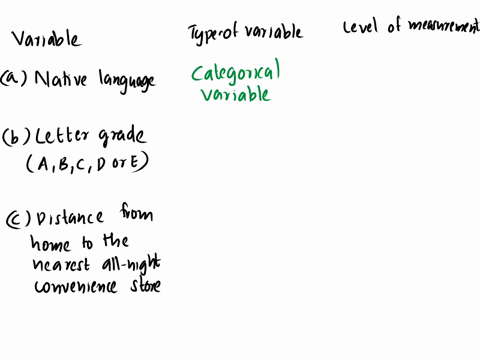 Variable Type of variable Level of measurement
(a) Native language Categorical variable
(b) Letter grade
(A, B, C, D or E)
(c) Distance from
home to the
nearest all-night
convenience store